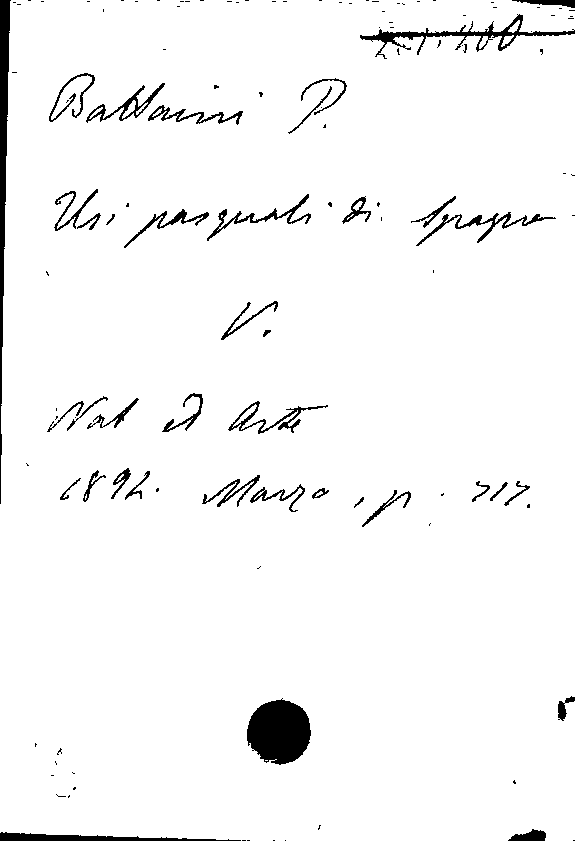 Battaini P.
Usi pasquali di Spagna
V.
Nat ed Arte
1892. Marzo, p. 717.